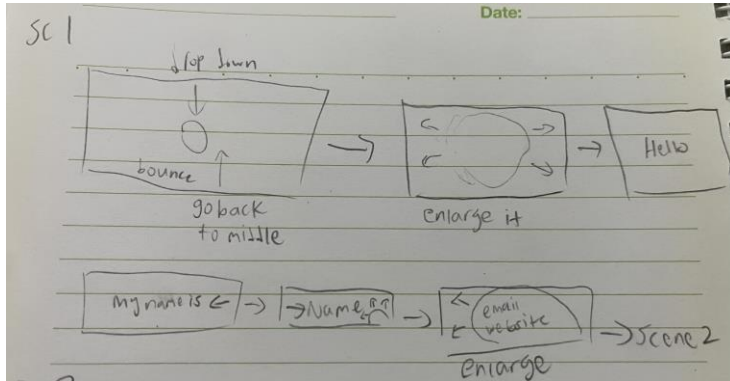 Date:
SC 1
drop down
bounce
go back
to middle
enlarge it
Hello
My name is
Name
email
website
enlarge
Scene 2